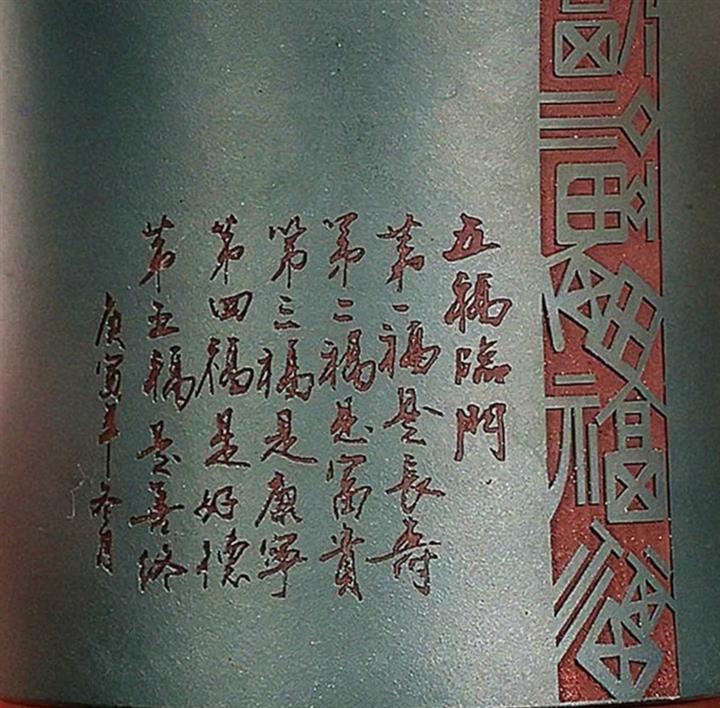 福福福福福
五福臨門
第一福是長壽
第二福是富貴
第三福是康寧
第四福是好德
第五福是善終
庚寅年冬月